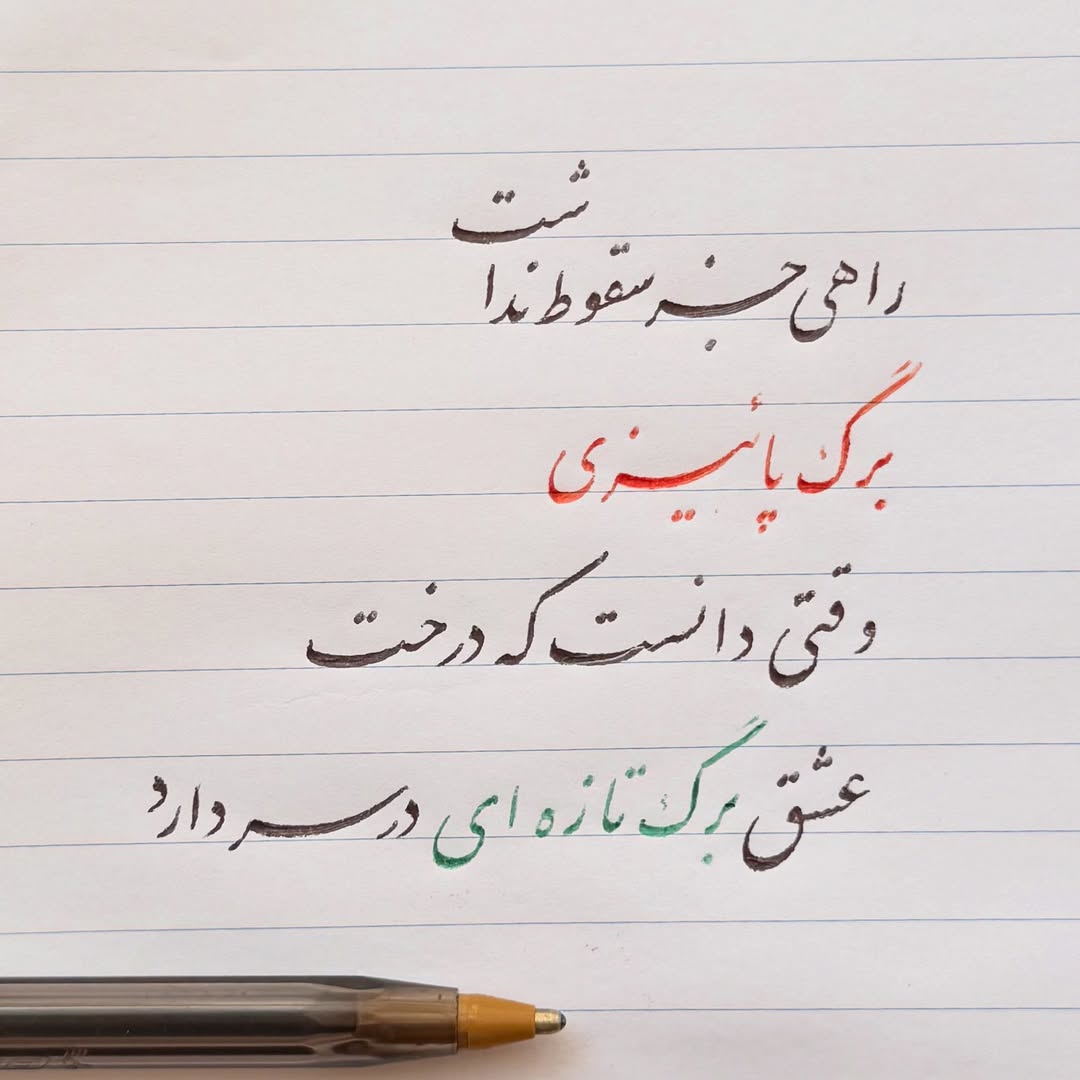 راهی جز سقوط نداشت
برگ پائیزی
وقتی دانست که درخت
عشق برگ تازه ای در سر دارد